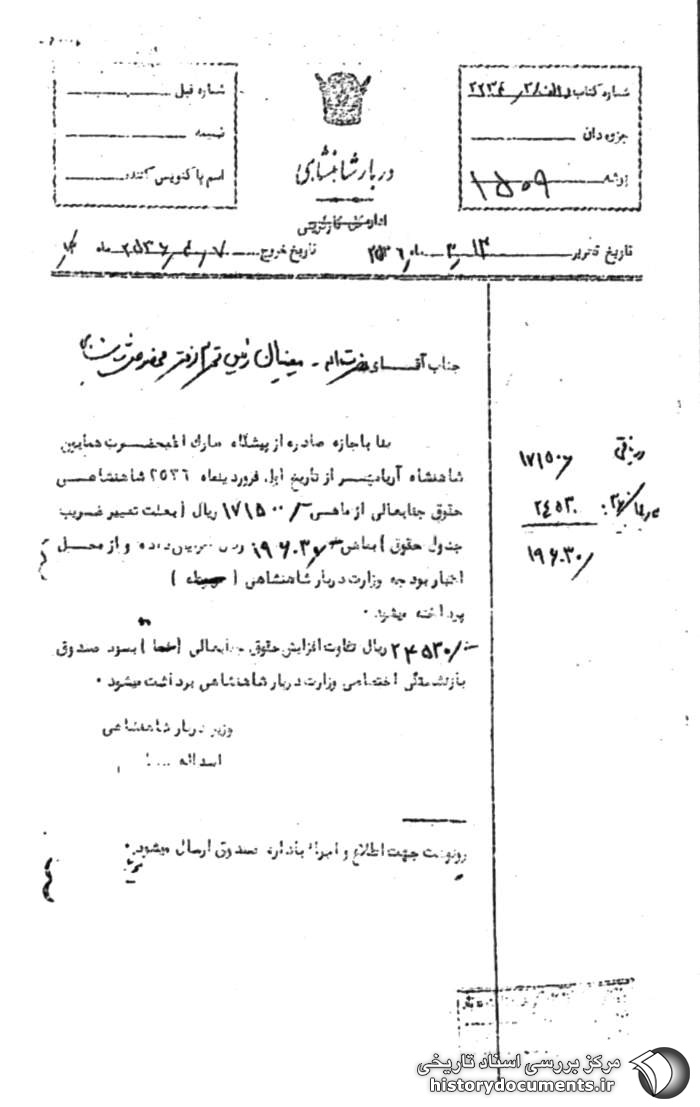 شماره کتاب
جزوه‌دان
پوشه ۱۵۰۹
دربار شاهنشاهی
اداره کل کارگزینی
شماره قبل
ضمیمه
اسم پاکنویس کننده
تاریخ تحریر ۱۳ ر ۳ ماه ۲۵۳۶
تاریخ خروج ۷ ماه ۲۵۳۶
جناب آقای نصرت‌اله معینیان رئیس دفتر مخصوص شاهنشاهی
بنا باجازه صادره از پیشگاه مبارک اعلیحضرت همایون
شاهنشاه آریامهر از تاریخ اول فروردینماه ۲۵۳۶ شاهنشاهی
حقوق جنابعالی از ماهی ۱۷۱۵۰۰/- ریال (بعلت تغییر ضریب
جدول حقوق) بماهی ۱۹۶۰۳۰/- ریال افزایش داده و از محل
اعتبار بودجه وزارت دربار شاهنشاهی ( )
پرداخته میشود.
۲۴۵۳۰/- ریال تفاوت افزایش حقوق جنابعالی ( ) بسود صندوق
بازنشستگی اختصاصی وزارت دربار شاهنشاهی برداشت میشود.
وزیر دربار شاهنشاهی
اسداله
رونوشت جهت اطلاع و اجراء باداره صندوق ارسال میشود.
دریافتی ۱۷۱۵۰۰
۲۴۵۳۰
۱۹۶۰۳۰/
مرکز بررسی اسناد تاریخی
historydocuments.ir